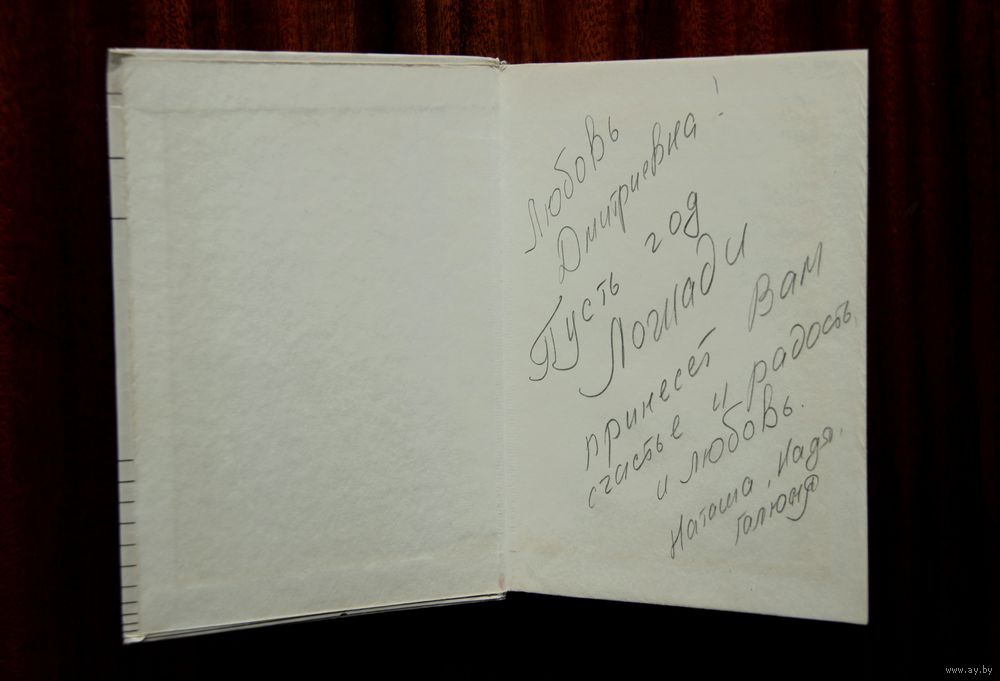 Любовь
Дмитриевна!
Пусть год
Лошади
принесёт Вам
счастье и радость,
и любовь.
Наташа, Надя,
Галюня
www.ay.by